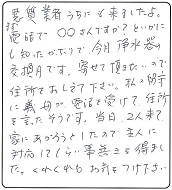 悪質業者うちにも来ましたよ。
電話で〇〇さんですか?といかに
も知ったかぶりで今月浄水器の
交換月です。寄せて頂きたいので
住所をおしえて下さい。私の留守
に義母が電話を受けて住所
を言ったそうです。当日、2人来て
家にあがろうとしたので主人に
対応してもらい事無きを得まし
た。くれぐれもお気をつけ下さい